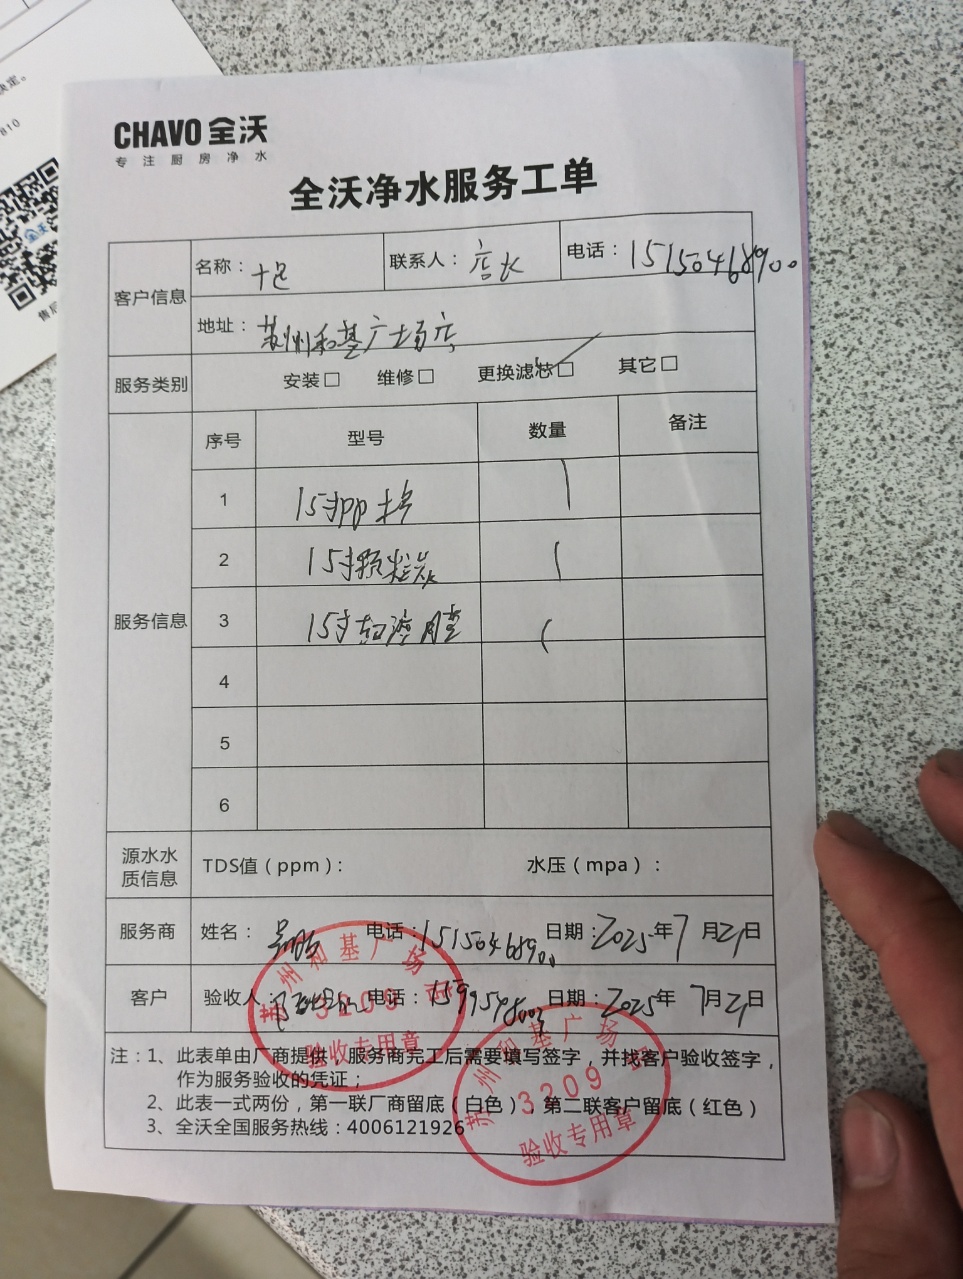 决定。
810
全沃
售后
CHAVO 全沃
专注厨房净水
全沃净水服务工单
客户信息 名称： 联系人：店长 电话：15150468900
地址：苏州和基广场店
服务类别 安装□ 维修□ 更换滤芯□ 其它□
服务信息 序号 型号 数量 备注
1 15寸PP 1
2 15寸颗粒炭 1
3 15寸超滤膜 1
4
5
6
源水水质信息 TDS值（ppm）： 水压（mpa）：
服务商 姓名： 电话：15150468900 日期：2025年7月21日
客户 验收人： 电话： 日期：2025年7月21日
注：1、此表单由厂商提供，服务商完工后需要填写签字，并找客户验收签字，
作为服务验收的凭证；
2、此表一式两份，第一联厂商留底（白色），第二联客户留底（红色）
3、全沃全国服务热线：4006121926
苏州和基广场店
3209
验收专用章
苏州和基广场店
3209
验收专用章